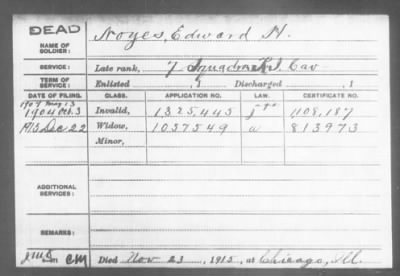 DEAD
NAME OF SOLDIER: Noyes, Edward H.
SERVICE: Late rank, 7 Squadron R.I. Cav
TERM OF SERVICE: Enlisted , 1 Discharged , 1
DATE OF FILING. CLASS. APPLICATION NO. LAW. CERTIFICATE NO.
1907 May 13
1904 Oct. 3 Invalid, 1,325,445 1,108,187
1915 Dec 22 Widow, 1057549 a 813973
Minor,
ADDITIONAL SERVICES:
REMARKS:
cm Died Nov 23, 1915, at Chicago, Ill.